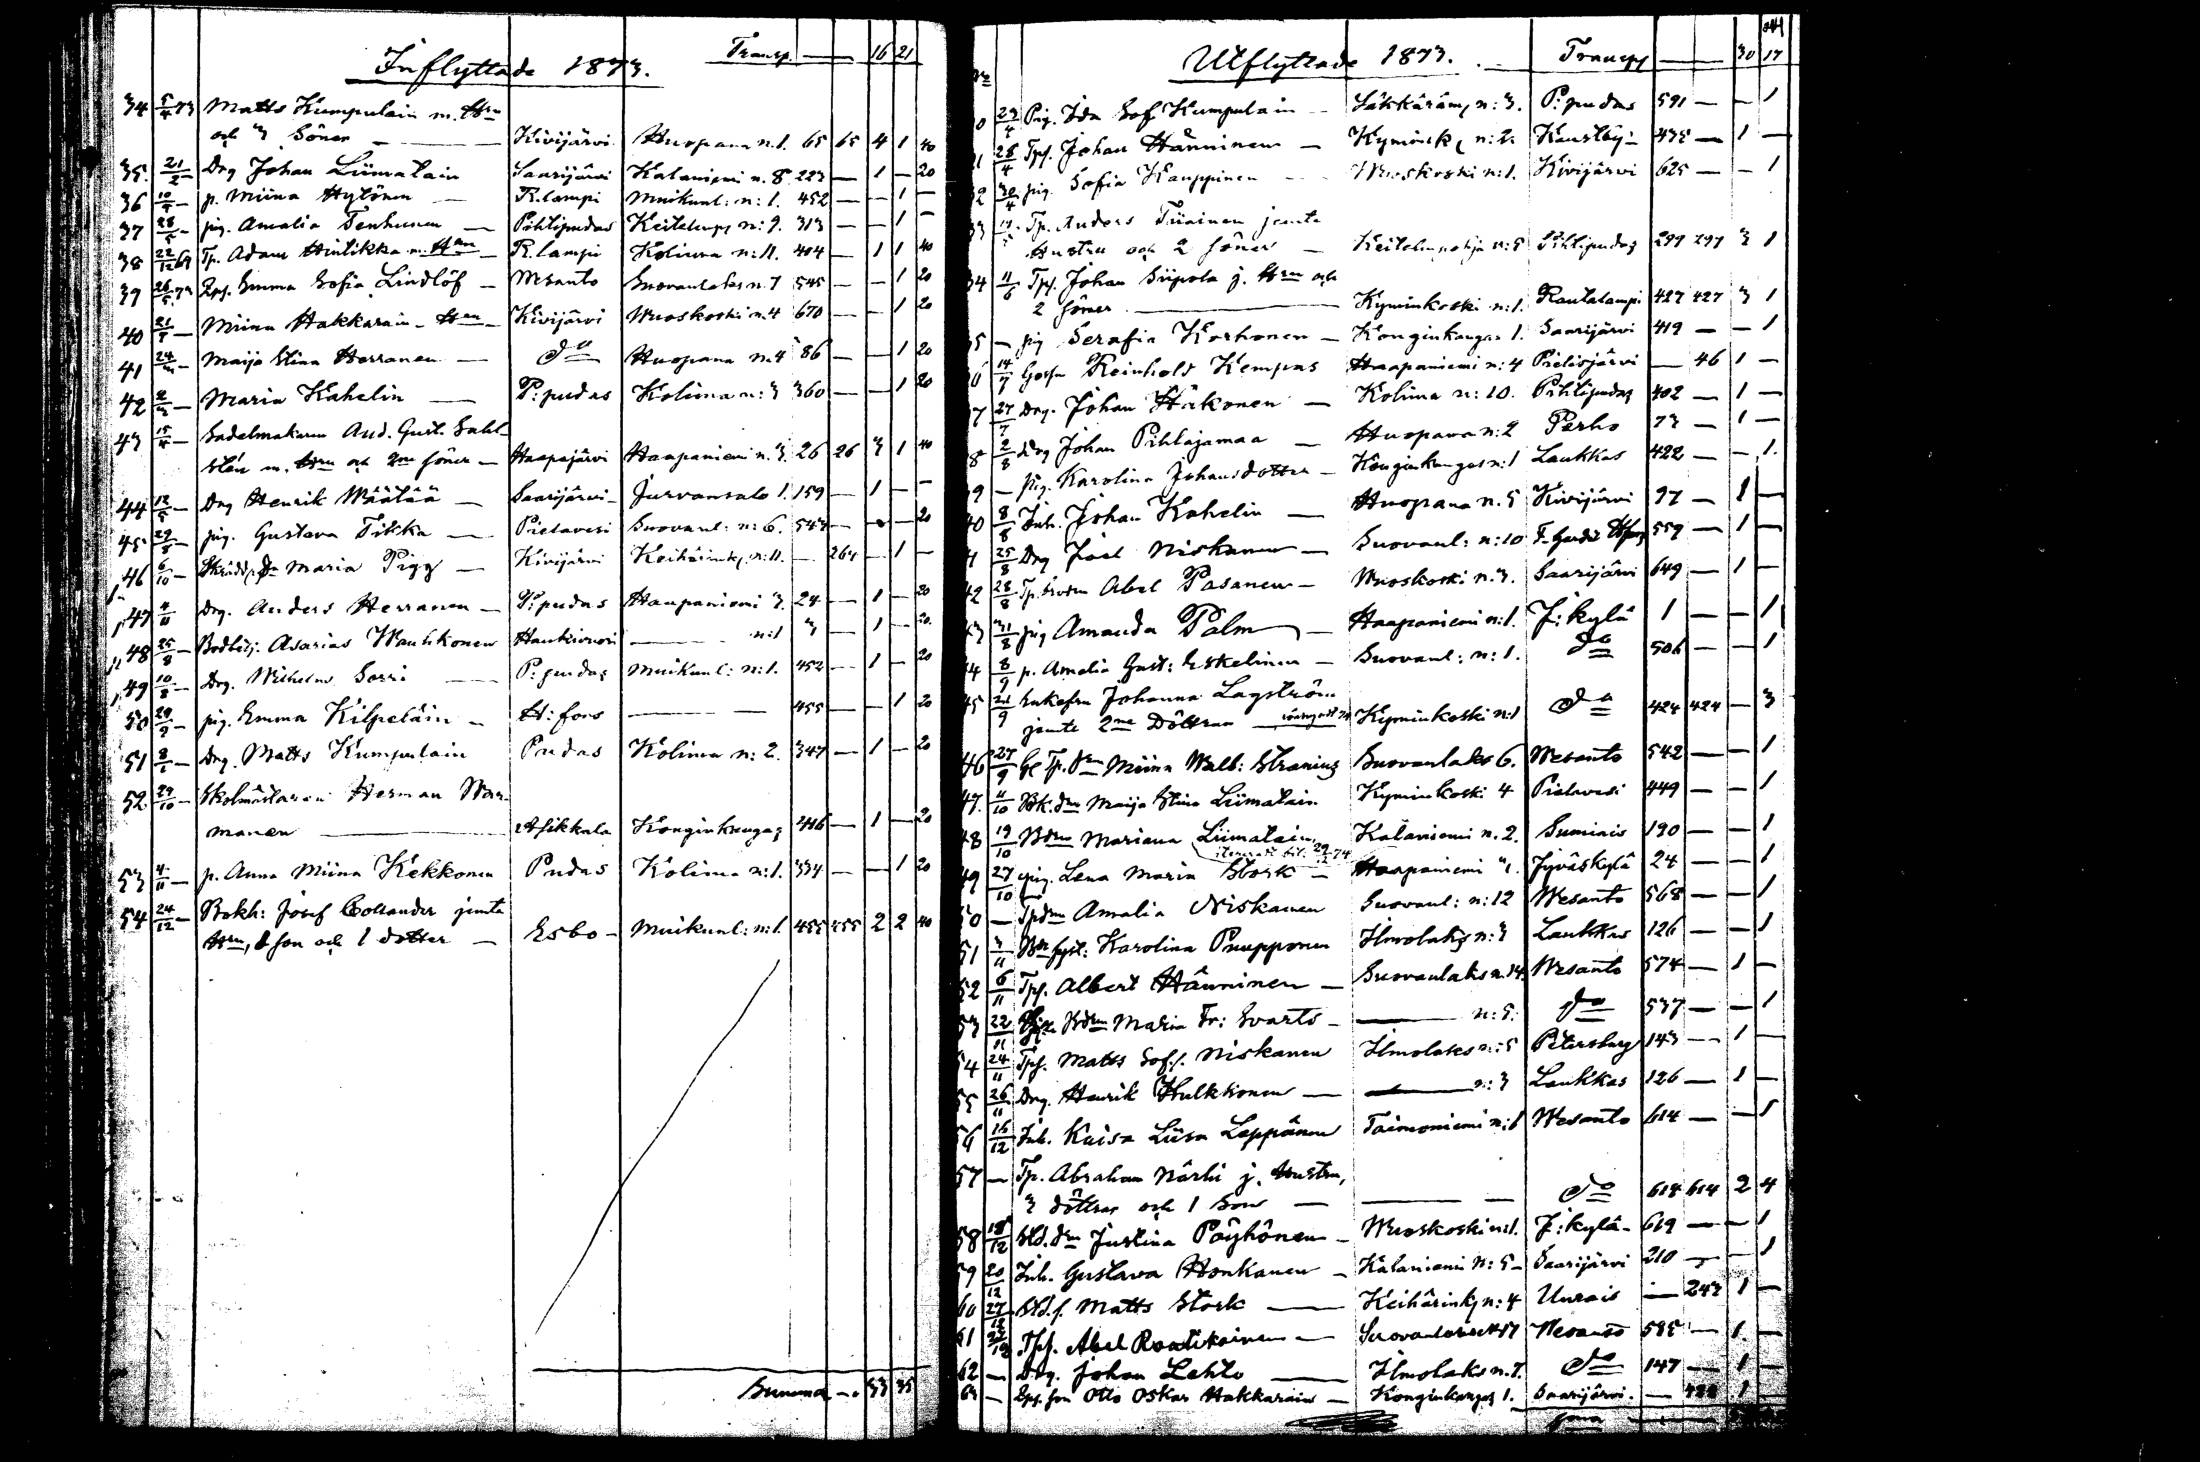 Inflyttade 1873. Transp. — 16 21
34 5/4 73 Matts Kumpulain m. Hru
och 3 Söner — Kivijärvi Huopana n.1. 65 65 4 1 40
35 21/2 — Drg Johan Liimatain Saarijärvi Kalaniemi n. 8 223 — 1 — 20
36 10/4 — p. Miina Hytönen — R.lampi Muikunl: n: 1. 452 — — 1 —
37 28/5 — pig. Amalia Tenhunen — Pihtipudas Keitelepg n: 9. 313 — — 1 —
38 22/12 69 Tp. Adam Hintikka m. Hru — R.lampi Kolima n: 11. 404 — 1 1 40
39 26/5 73 Emma Sofia Lindlöf — Wesanto Suovanlaks n. 7 545 — — 1 20
40 21/5 — Miina Hakkarain — Kivijärvi Wuoskoski n. 4 670 — — 1 20
41 24/3 — Maija Stina Herranen — do Huopana n. 4 86 — — 1 20
42 2/3 — Maria Kahelin — P: pudas Kolima n: 3 360 — — 1 20
43 15/4 — Sadelmakaren And. Gust. Sahl-
stén m. Hru och 2ne söner — Haapajärvi Haapaniemi n. 3. 26 26 3 1 40
44 12/5 — Drg Henrik Määttä — Saarijärvi — Jurvansalo 1. 159 — 1 — —
45 29/5 — pig. Gustava Tikka — Pielavesi Suovanl: n: 6. 543 — — 20
46 6/10 — Maria Pigg — Kivijärvi Keihärink. n: 11. — 264 — 1 —
47 4/11 Drg. Anders Herranen — P: pudas Haapaniemi 3. 24 — 1 — 20
48 25/8 — Asarias Wauhkonen Hankivuori — n: 1 3 — 1 — 20
49 10/8 — Drg. Wilhelm Sorri — P: pudas Muikunl: n: 1. 452 — 1 — 20
50 29/9 — pig. Emma Kilpeläin — H: fors — 455 — — 1 20
51 8/6 — Drg. Matts Kumpulain Pudas Kolima n: 2. 347 — 1 — 20
52 29/10 — Skolmästaren Herman War-
manen — Asikkala Konginkangas 446 — 1 — 20
53 4/11 — p. Anna Miina Kekkonen Pudas Kolima n: 1. 334 — — 1 20
54 24/12 — Bokh: Josef Collander jemte
Hru, 1 son och 1 dotter — Esbo — Muikunl: n: 1. 455 455 2 2 40
Summa — 33 35
Utflyttade 1873. Transp — 30 17
29/4 Pig. Ida Sof. Kumpulain — Säkkäräm, n: 3. P: pudas 591 — — 1
28/4 Tps. Johan Hänninen — Kymönk, n: 2. Kaustby — 435 — 1 —
30/4 pig. Sofia Kauppinen — Wuoskoski n: 1. Kivijärvi 625 — — 1
33 Tp. Anders Tiainen jemte
Hustru och 2 söner — Keitelempohja n: 5 Pihtipudas 297 297 3 1
34 11/6 Tps. Johan Siipola j. Hru och
2 söner — Kyminkoski n: 1. Rautalampi 427 427 3 1
— pig Serafia Korhonen — Konginkangas 1. Saarijärvi 419 — — 1
14/7 Reinhold Kempas Haapaniemi n: 4 Pielisjärvi — 46 1 —
27/7 Drg. Johan Häkonen — Kolima n: 10. Pihtipudas 402 — 1 —
2/8 Drg Johan Pihlajamaa — Huopana n: 2 Perho 73 — 1 —
— pig. Karolina Johansdotter — Konginkangas n: 1 Laukkas 422 — — 1.
40 8/8 Inh. Johan Kahelin — Huopana n. 5 Kivijärvi 97 — 1 —
25/8 Drg Joel Niskanen — Suovanl: n: 10 559 — 1 —
42 28/8 Abel Pasanen — Wuoskoski n. 3. Saarijärvi 649 — 1 —
31/8 pig Amanda Palm — Haapaniemi n: 1. J: kylä 1 — — 1
8/9 p. Amalia Gust: Eskelinen — Suovanl: n: 1. do 506 — — 1
45 Enkefru Johanna Lagström
jemte 2ne Döttrar — Kyminkoski n: 1 do 424 424 — 3
46 27/9 Miina Walb: Stranius Suovanlaks 6. Wesanto 542 — — 1
47. 11/10 Maija Stina Liimatain Kyminkoski 4 Pielavesi 449 — — 1
48 19/10 Mariana Liimatain Kalaniemi n. 2. Sumiais 190 — — 1
49 27/10 pig. Lena Maria Stork — Haapaniemi Jyväskylä 24 — — 1
50 — Amalia Niskanen Suovanl: n: 12 Wesanto 568 — — 1
51 3/11 Karolina Puupponen Ilmolaks n: 3 Laukkas 126 — — 1
52 6/11 Tps. Albert Hänninen — Suovanlaks n. 14. Wesanto 574 — 1 —
53 22/11 Maria Fr: Svarts — n: 5. do 537 — — 1
54 24/11 Tps. Matts Sof. Niskanen Ilmolaks n: 5 Petersburg 143 — 1 —
55 26/11 Drg. Henrik Hulkkonen — n: 3 Laukkas 126 — 1 —
56 16/12 Inh. Kaisa Liisa Leppänen Taimoniemi n: 1 Wesanto 614 — — 1
57 — Tp. Abraham Närhi j. Hustru,
3 döttrar och 1 Son — do 614 614 2 4
58 18/12 Justina Pöyhönen — Wuoskoski n: 1. J: kylä — 619 — — 1
59 20/12 Inh. Gustava Honkanen — Kalaniemi n: 5 — Saarijärvi 210 — — 1
60 27/12 Matts Stork — Keihärink, n: 4 Urais — 243 1 —
61 27/12 Tps. Abel Raatikainen — Suovanlaks 17 Wesanto 585 — 1 —
62 — Drg. Johan Lehto — Ilmolaks n. 7. do 147 — 1 —
63 — son Otto Oskar Hakkarain — Konginkangas 1. Saarijärvi. — 422 1 —